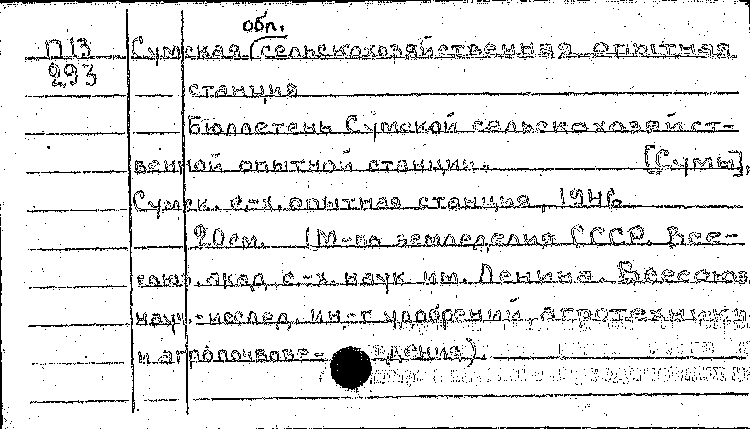 обл.
П13 Сумская сельскохозяйственная опытная
293
станция
Бюллетень Сумской сельскохозяйст-
венной опытной станции. [Сумы],
Сумск. с.-х. опытная станция, 1946
20см. (М-во земледелия СССР. Все-
союз. акад. с.-х. наук им. Ленина. Всесоюз.
науч.-исслед. ин-т удобрений, агротехники
и агропочвове- дения).